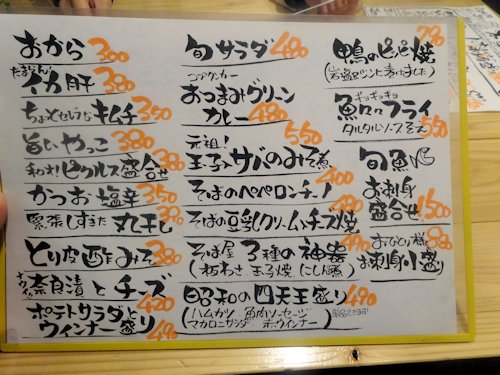 おから 300
たまらん
イカ肝 380
キムチ 350
旨いやっこ 380
和利ピクルス盛合せ 380
かつお塩辛 350
緊張しすぎた丸干し
とり皮酢みそ 380
奈良漬とチーズ 420
ポテトサラダと
ウインナー盛り 490
旬サラダ 480
おつまみグリーン
カレー 480
元祖! 550
玉子とサバのみそ煮
そばのペペロンチーノ 400
そばの豆乳クリームチーズ焼 480
そば屋3種の神器 490
(板わさ 玉子焼 にしん煮)
昭和の四天王盛り 490
(ハムカツ 魚肉ソーセージ
マカロニサラダ ウインナー)
780
鴨のピリピリ焼
ギョギョギョ
魚々フライ
タルタルソース 550
旬魚
お刺身
盛合せ 1500
おひとり様 880
お刺身小盛